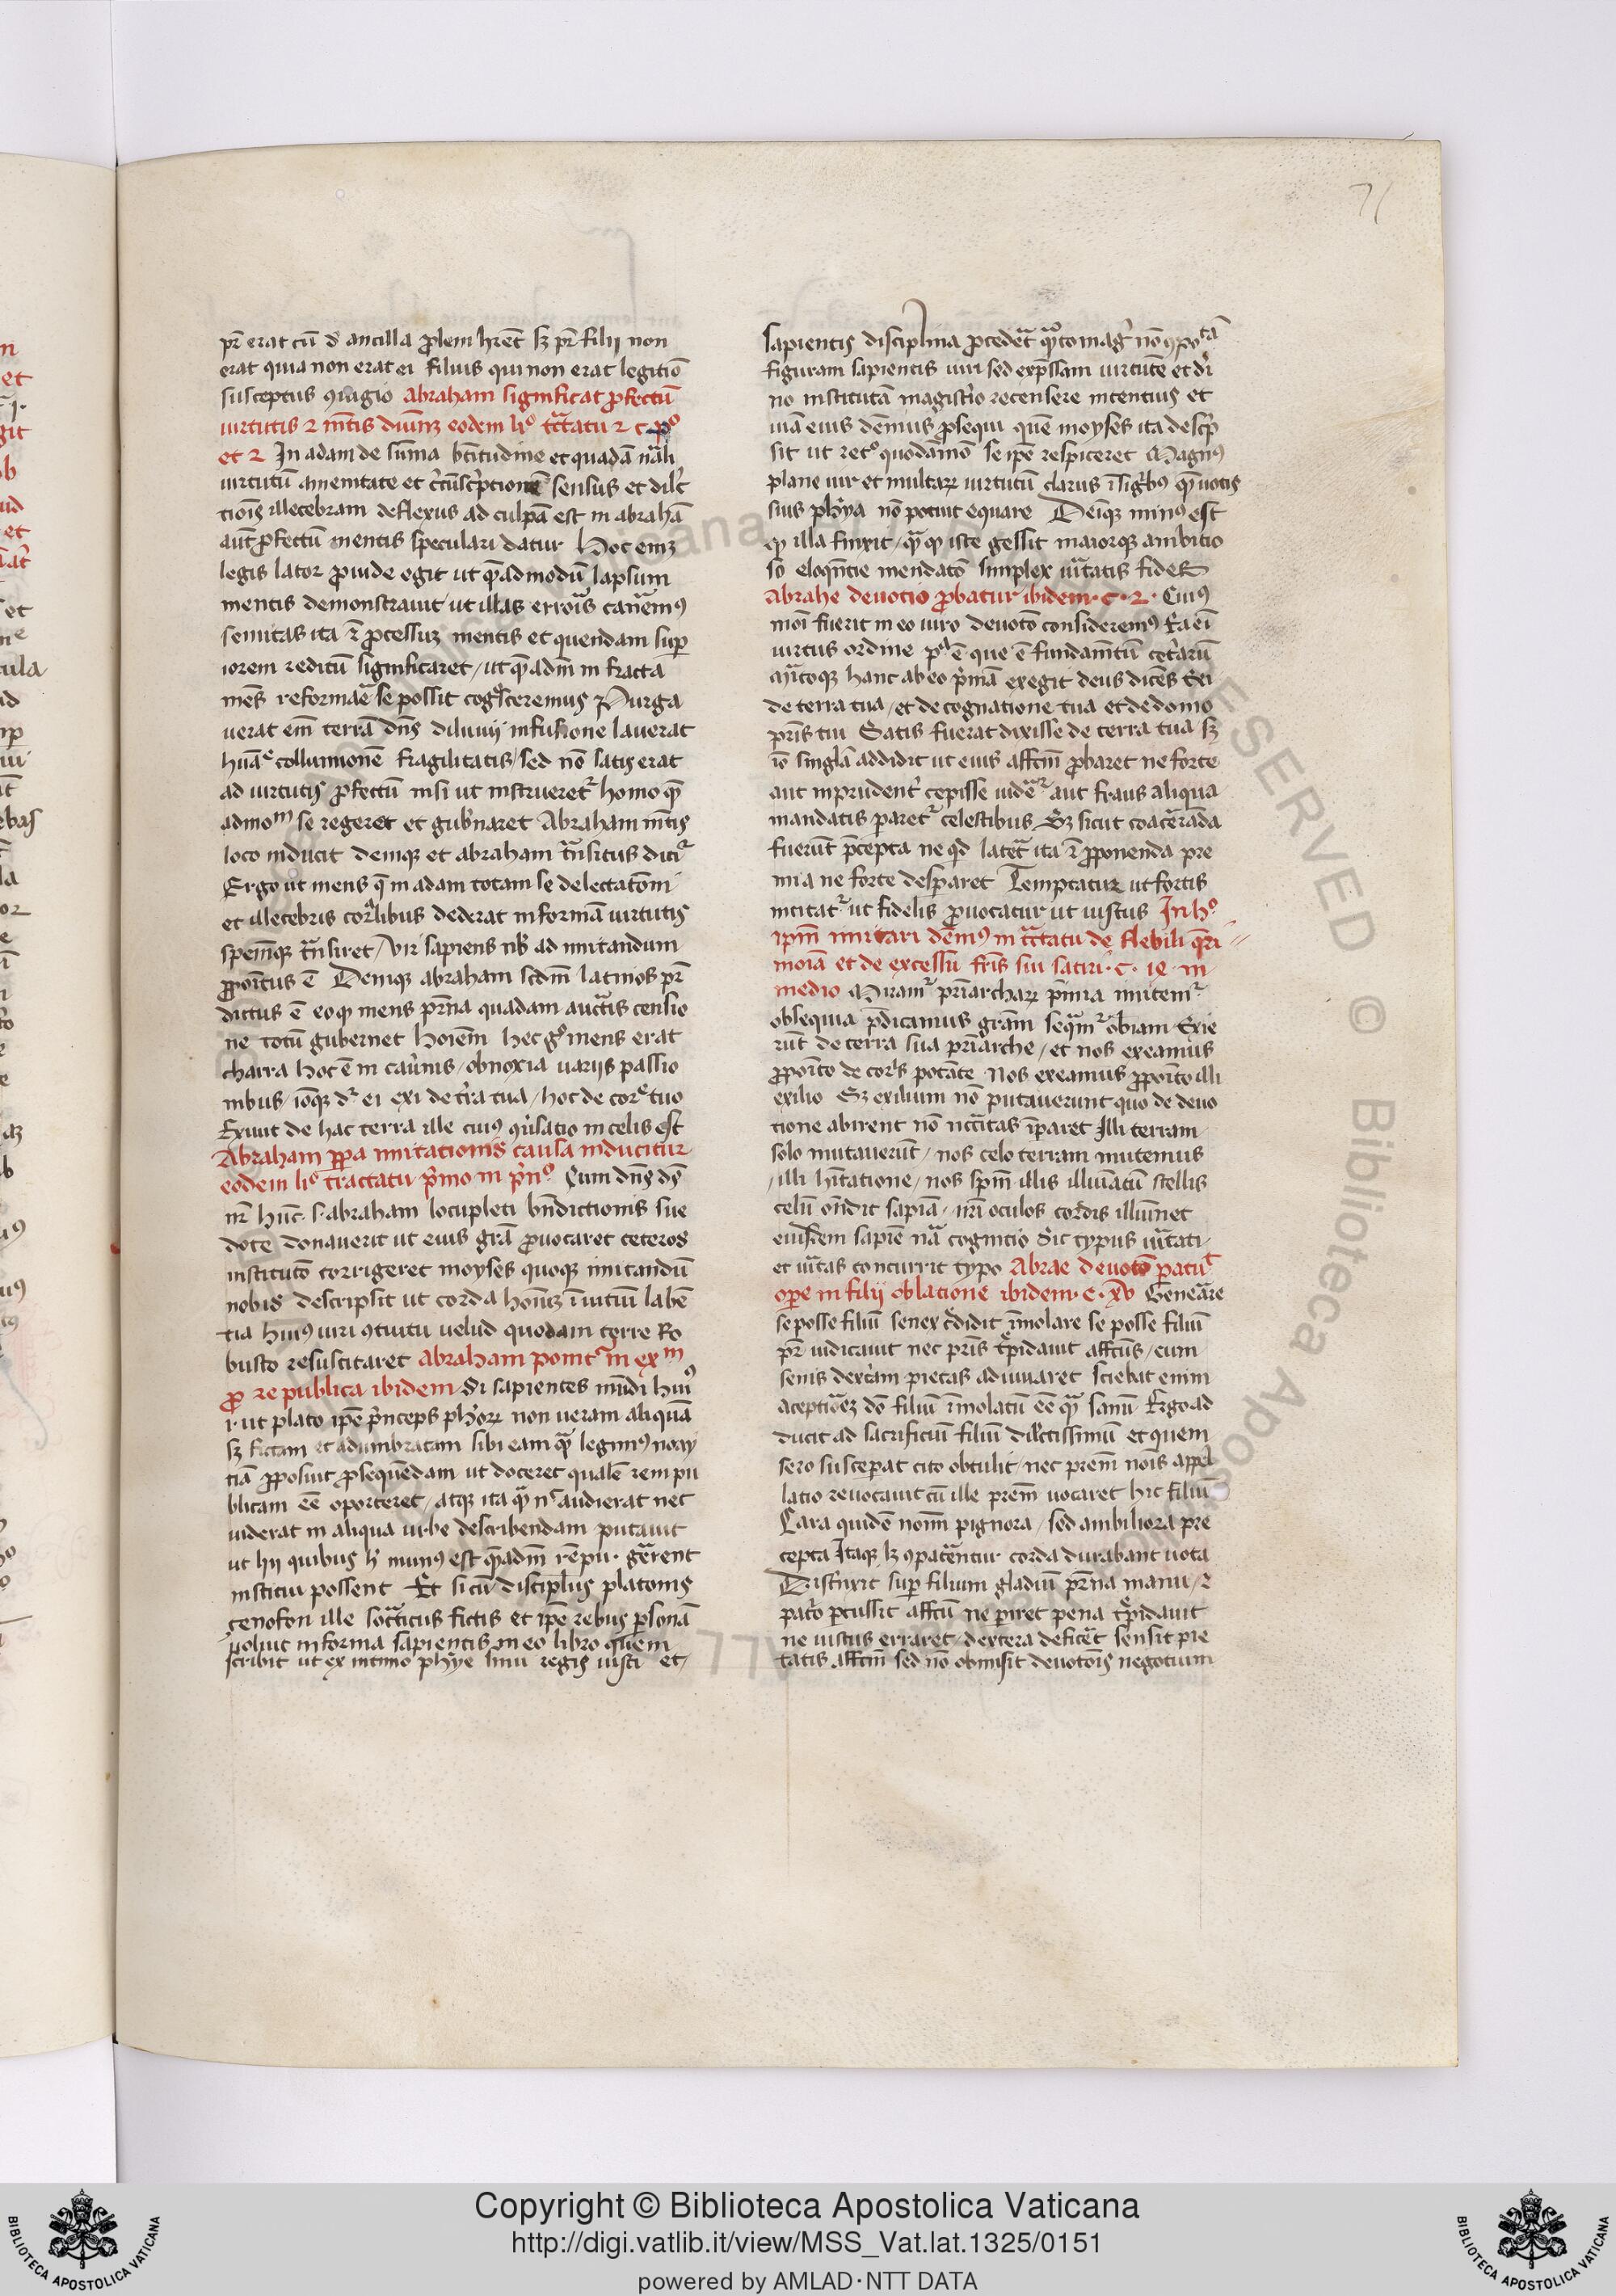 71
pr̄ erat cū d̕ ancilla ꝓlem hr̄et sꝫ pr̄ filij non
erat quia non erat ei filius qui non erat legitīo
susceptus ꝯiugio Abraham significat ꝓfectū
uirtutis ⁊ mētis diuinꝫ eodem liº tc̄tatu 2 c. pº
et 2 In adam de sūma bt̄itudine et quadā
uirtutū amenitate et sensus et
tionis illecebram deflexus ad culpā est in abrahā
aut̄ ꝓfectū mentis speculari datur Hoc
legis lator ꝓuide egit ut quēadmodū lapsum
mentis demonstrauit ut illas errois
semitas ita ⁊ ꝓcessuꝫ mentis et quendam sup
iorem reditū significaret ut quēadm̄ in fracta
mēs se possit cogˢceremus Purga
uerat em̄ terrā dn̄s diluuij infusione lauerat
colluuionē fragilitatis sed nō satis erat
ad uirtutis ꝓfectū nisi ut instrueretʳ homo quē
admoᵐ se regeret et gub̕naret Abraham mētis
loco inducit deniqꝫ et abraham tn̄situs dicʳ
Ergo ut mens q̄ in adam totam se delectatōni
et illecebris corᵃlibus dederat in formā uirtutis
spemqꝫ tn̄siret Vir sapiens nb̕ ad imitandum
ꝓpoītus ē Deniqꝫ abraham scdm̄ latinos pr̄
dictus ē eo qꝫ mens pr̄na quadam auctis censio
ne totū gubernet hoīem hec gº mens erat
charra hoc ē in cau̕nis obnoxia uarijs passio
nibus ioqꝫ dʳ ei exi de tr̄ra tua hoc de corᵉ tuo
Exiuit de hac terra ille cuiꝰ ꝯu̕satio in celis est
Abraham ꝓpa imitationis causa inducitur
eodem liº tractatu p̕mo in p̕nº Cum dn̄s ds̄
nr̄ hūc .s. abraham locupleti bn̄dictionis sue
dote donauerit ut eius gr̄a ꝓuocaret ceteros
institutō corrigeret moyses quoqꝫ imitandū
nobis descripsit ut corda hoīuꝫ ī uitiū labē
tia huiꝰ uiri ꝯtuitu uelud quodam terre Ro
busto resuscitaret Abraham ponitʳ in exᵐ
ꝓ re publica ibidem Si sapientes mūdi huiꝰ
.i. ut plato ipē p̕nceps ph̕oꝝ non ueram aliquā
sꝫ fictam et adumbratam sibi eam quā legimꝰ
tiā ꝓposuit ꝓsequēdam ut doceret qualē rem pu
blicam eē oporteret atqꝫ ita quā nᶜ audierat nec
uiderat in aliqua urbe describendam putauit
ut hij quibus h̕ munꝰ est quēadm̄ rēpu. gerent
institui possent Et si cū discipl̕us platonis
cenofon ille socᵃticus fictis et ipē rebus ꝑsonā
uoluit informa sapientis in eo libro quem
scribit ut ex intimo ph̕ye sinu regis iusti et
sapientis disciplina ꝓcedet̄ quāto magʳ nō
figuram sapientis uiri sed exp̄ssam uirtutē et di
no institutā magistro recensere intentius et
uiā eius dēmus ꝓsequi quē moyses ita descp̕
sit ut retº quodāmō seipē respiceret Magnꝰ
plane uir et multaꝝ uirtutū clarus īsigᵇꝰ quē uotis
suis ph̕ya nō potuit equare Deīqꝫ minꝰ est
qꝫ illa finxit quā qꝫ iste gessit maiorqꝫ ambitio
so eloquētie mendatō simplex ueritatis fides
Abrahe deuotio ꝓbatur ibidem. c. 2. Cuiꝰ
moī fuerit in eo uiro deuotō consideremꝰ Ea eī
uirtus ordine pᵃ ē que ē fundamētū ceterarū
hanc ab eo p̕mā exegit deus dicēs exi
de terra tua et de cognatione tua et de domo
pr̄is tui Satis fuerat dixisse de terra tua sꝫ
iō singl̄a addidit ut eius affcm̄ ꝓbaret ne forte
aut inprudent̕ cepisse uiderʳ aut fraus aliqua
mandatis pararetʳ celestibus Sꝫ sicut coacerādā
fuerūt p̄cepta ne qd lateret ita ⁊ ꝓponenda pre
mia ne forte desꝑaret Temptatur ut fortis
incitatʳ ut fidelis ꝓuocatur ut iustus In hº
ip̄m imitari dēmꝰ in tc̄tatu de flebili q̄ri
moīa et de excessu fr̄is sui satiri. c. 10 in
medio Miramʳ pr̄iarchaꝝ p̄mia imitemʳ
obsequia p̄dicamus gr̄am sequāmʳ obiam Exie
rūt de terra sua pr̄iarche et nos exeamus
ꝓpoīto de corᵖis potāte Nos exeamus ꝓpoīto illi
exilio Sꝫ exilium nō putauerunt quo de deuo
tione abirent nō nc̄citas īꝑaret Illi terram
solo mutauerūt nos celo terram mutemus
illi hītatione nos spm̄ illis illuīatū stellis
celū on̄dit sapīa nr̄i oculos cordis illuminet
eiusdem sapiē nā cognitio Sic typus uītati
et uītas concurrit typo Abrae deuotō
ope in filij oblatione ibidem. c. xv Generare
se posse filiū senex credidit ī̄molare se posse filiū
pr̄ iudicauit nec pr̄is trepidauit affcūs cum
senis dextrā pietas adiuuaret Sciebat enim
aceptiorē dō filiū immolatū eē quā sanū Ergo ad
ducit ad sacrificiū filiū dilectissimū et quem
sero suscepat cito obtulit nec pr̄em noīs appel
latio reuocauit cū ille pr̄em uocaret hic filiū
Cara quidē noīm pignora sed ambiliora pre
cepta Itaqꝫ lꝫ ꝯpaterentur corda durabant uota
Distrinxit sup filium gladiū pr̄na manu ⁊
patō ꝑcussit affcū ne ꝑiret pena trepidauit
ne ictus erraret dextera deficeret sensit pie
tatis affcm̄ sed nō obmisit deuotōis negotium
Copyright © Biblioteca Apostolica Vaticana
http://digi.vatlib.it/view/MSS_Vat.lat.1325/0151
powered by AMLAD·NTT DATA